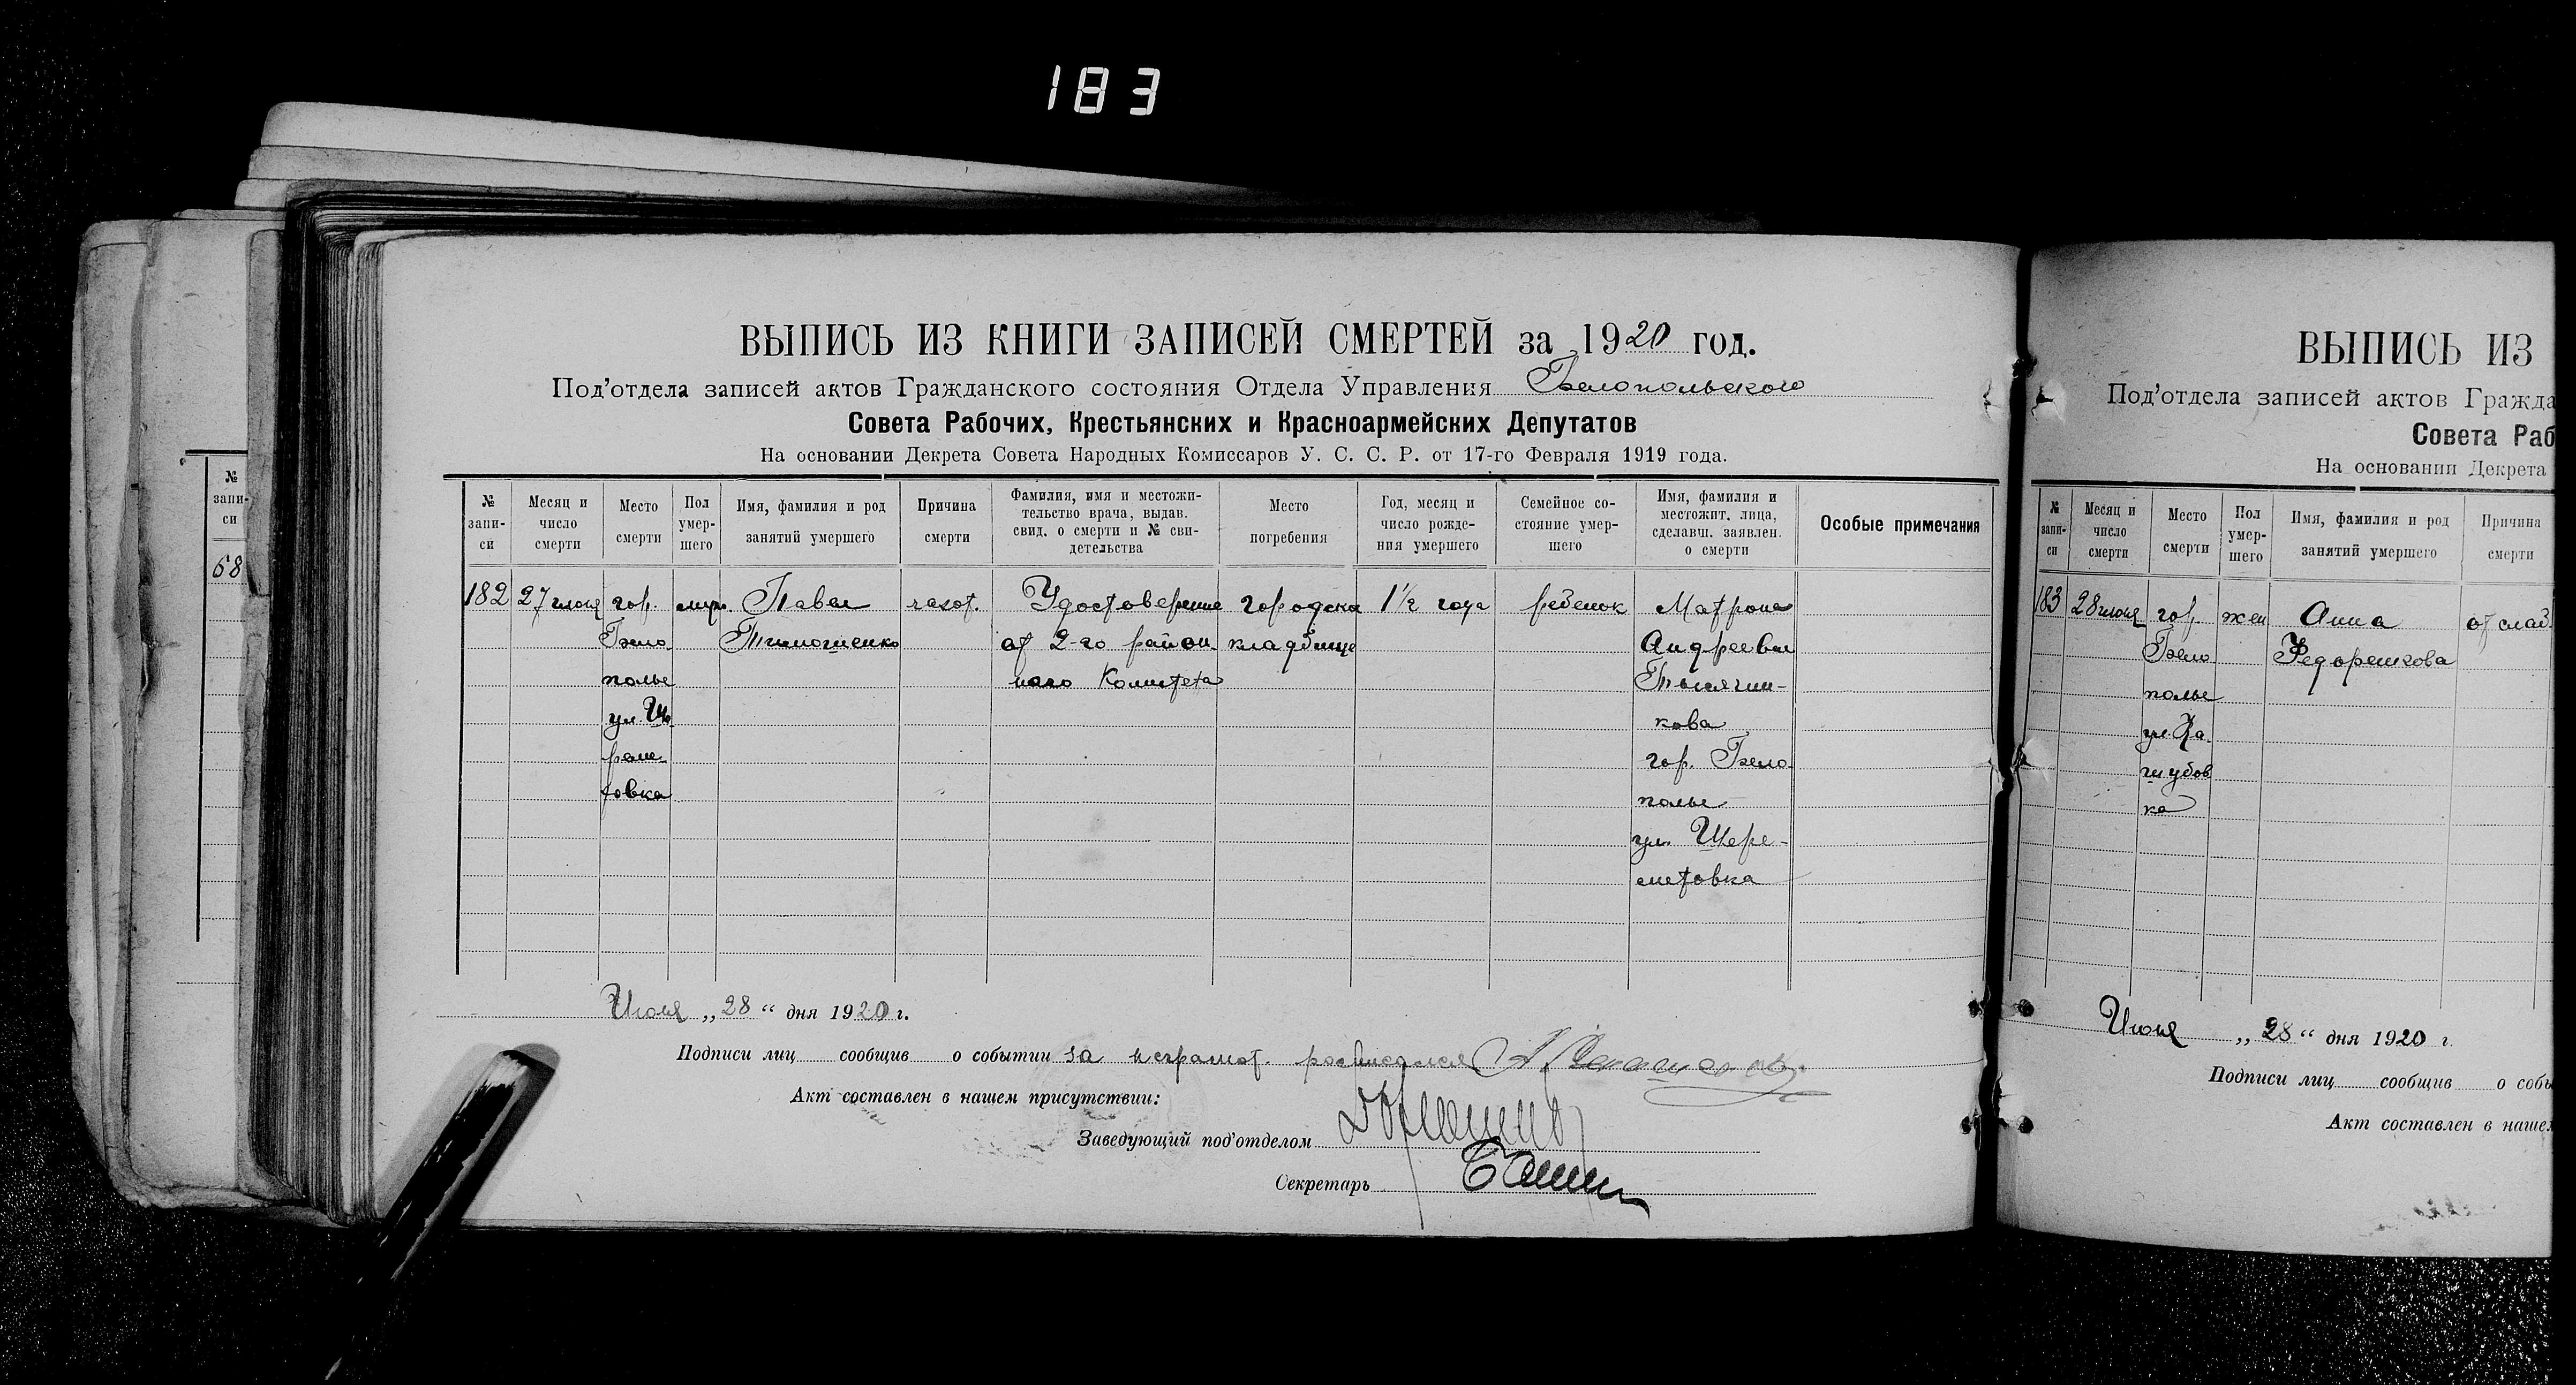 183
№
запи-
си
68
ВЫПИСЬ ИЗ КНИГИ ЗАПИСЕЙ СМЕРТЕЙ за 1920 год.
Под'отдела записей актов Гражданского состояния Отдела Управления Белопольского
Совета Рабочих, Крестьянских и Красноармейских Депутатов
На основании Декрета Совета Народных Комиссаров У. С. С. Р. от 17-го Февраля 1919 года.
№ запи- си
Месяц и число смерти
Место смерти
Пол умер- шего
Имя, фамилия и род занятий умершего
Причина смерти
Фамилия, имя и местожи- тельство врача, выдав. свид. о смерти и № сви- детельства
Место погребения
Год, месяц и число рожде- ния умершего
Семейное со- стояние умер- шего
Имя, фамилия и местожит. лица, сделавш. заявлен. о смерти
Особые примечания
182 27 июля гор. муж. Павел чахот. Удостоверение городско 1½ года ребенок Матрона
Бело Тимошенко от 2-го район кладбище Андреевна
полье ного Комитета Тысячни-
ул. Ше кова
реме гор. Бело
товка полье
ул. Шере-
метовка
Июля „28“ дня 1920 г.
Подписи лиц сообщив о событии за неграмот. росписался
Акт составлен в нашем присутствии:
Заведующий под'отделом
Секретарь
ВЫПИСЬ ИЗ
Под'отдела записей актов Гражда
Совета Раб
На основании Декрета
№ запи- си
Месяц и число смерти
Место смерти
Пол умер- шего
Имя, фамилия и род занятий умершего
Причина смерти
183 28 июля гор. жен Анна от слаб.
Бело
полье
ка
Июля „28“ дня 1920 г.
Подписи лиц сообщив о собы
Акт составлен в нашем